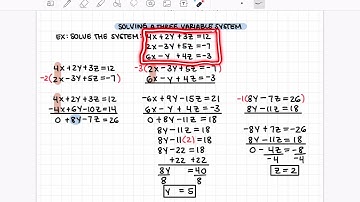 SOLVING A THREE VARIABLE SYSTEM
EX: SOLVE THE SYSTEM
4x+2y+3z=12
2x-3y+5z=-7
6x-y+4z=-3
4x+2y+3z=12
-2(2x-3y+5z=-7)
4x+2y+3z=12
-4x+6y-10z=14
0+8y-7z=26
-3(2x-3y+5z=-7)
6x-y+4z=-3
-6x+9y-15z=21
6x-y+4z=-3
0+8y-11z=18
8y-11z=18
8y-11(2)=18
8y-22=18
+22 +22
8y=40
8 8
y=5
-1(8y-7z=26)
8y-11z=18
-8y+7z=-26
8y-11z=18
0-4z=-8
-4 -4
z=2